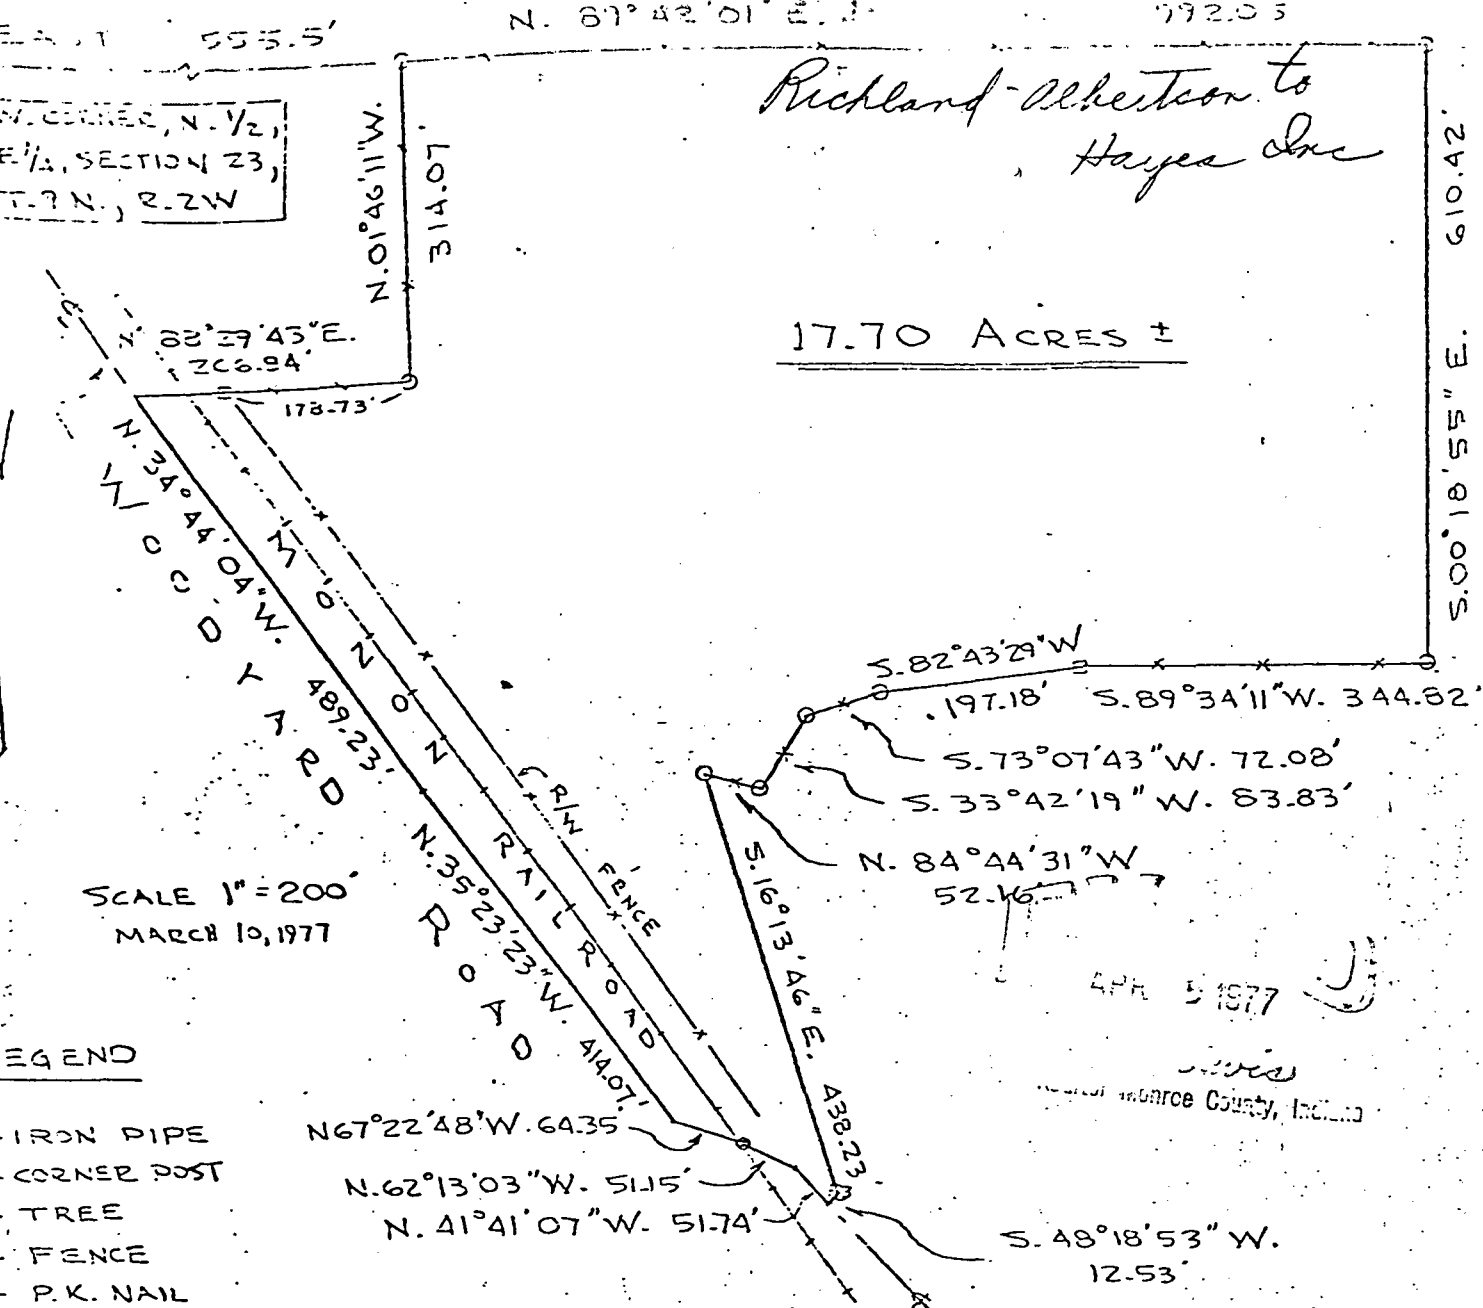 555.5'
N. 89°42'01" E.
992.05
Richland-Albertson to
Hayes Inc
N. 1/2,
SECTION 23,
T. 9 N., R. 2 W
N. 01°46'11" W.
314.07'
610.42'
S. 00°18'55" E.
17.70 ACRES ±
N 88°29'43" E.
266.94'
178.73'
N. 34°44'04" W. 489.23'
WOODYARD ROAD
MONON RAILROAD
R/W FENCE
S. 82°43'29" W
197.18'
S. 89°34'11" W. 344.82'
S. 73°07'43" W. 72.08'
S. 33°42'19" W. 83.83'
N. 84°44'31" W
52.16'
S. 16°13'46" E. 438.23'
N. 35°23'23" W. 414.07'
SCALE 1" = 200'
MARCH 10, 1977
APR 5 1977
Monroe County, Indiana
EGEND
IRON PIPE
CORNER POST
TREE
FENCE
P.K. NAIL
N 67°22'48" W. 64.35'
N. 62°13'03" W. 51.15'
N. 41°41'07" W. 51.74'
S. 48°18'53" W.
12.53'